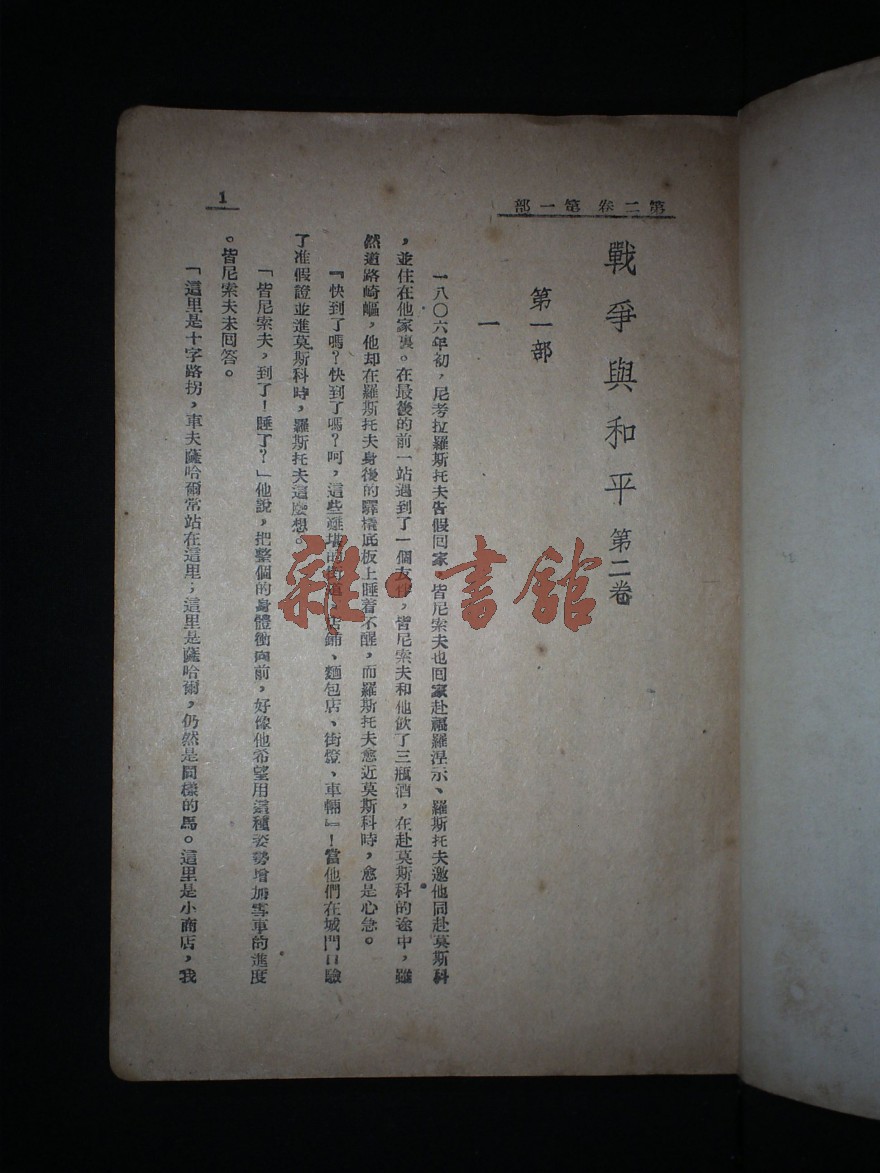 第二卷 第一部
1
戰爭與和平 第二卷
第一部
一
一八〇六年初，尼考拉羅斯托夫告假回家。皆尼索夫也回家赴福羅涅示、羅斯托夫邀他同赴莫斯科
，並住在他家裏。在最後的前一站遇到了一個友伴，皆尼索夫和他飲了三瓶酒，在赴莫斯科的途中，雖
然道路崎嶇，他却在羅斯托夫身後的驛橇底板上睡着不醒，而羅斯托夫愈近莫斯科時，愈是心急。
『快到了嗎？快到了嗎？呵，這些難堪的街道、店鋪、麵包店、街燈、車輛』！當他們在城門口驗
了准假證並進莫斯科時，羅斯托夫這麽想。
「皆尼索夫，到了！睡了？」他說，把整個的身體衝向前，好像他希望用這種姿勢增加雪車的進度
。皆尼索夫未回答。
「這里是十字路拐，車夫薩哈爾常站在這里；這里是薩哈爾，仍然是同樣的馬。這里是小商店，我
雜·書館